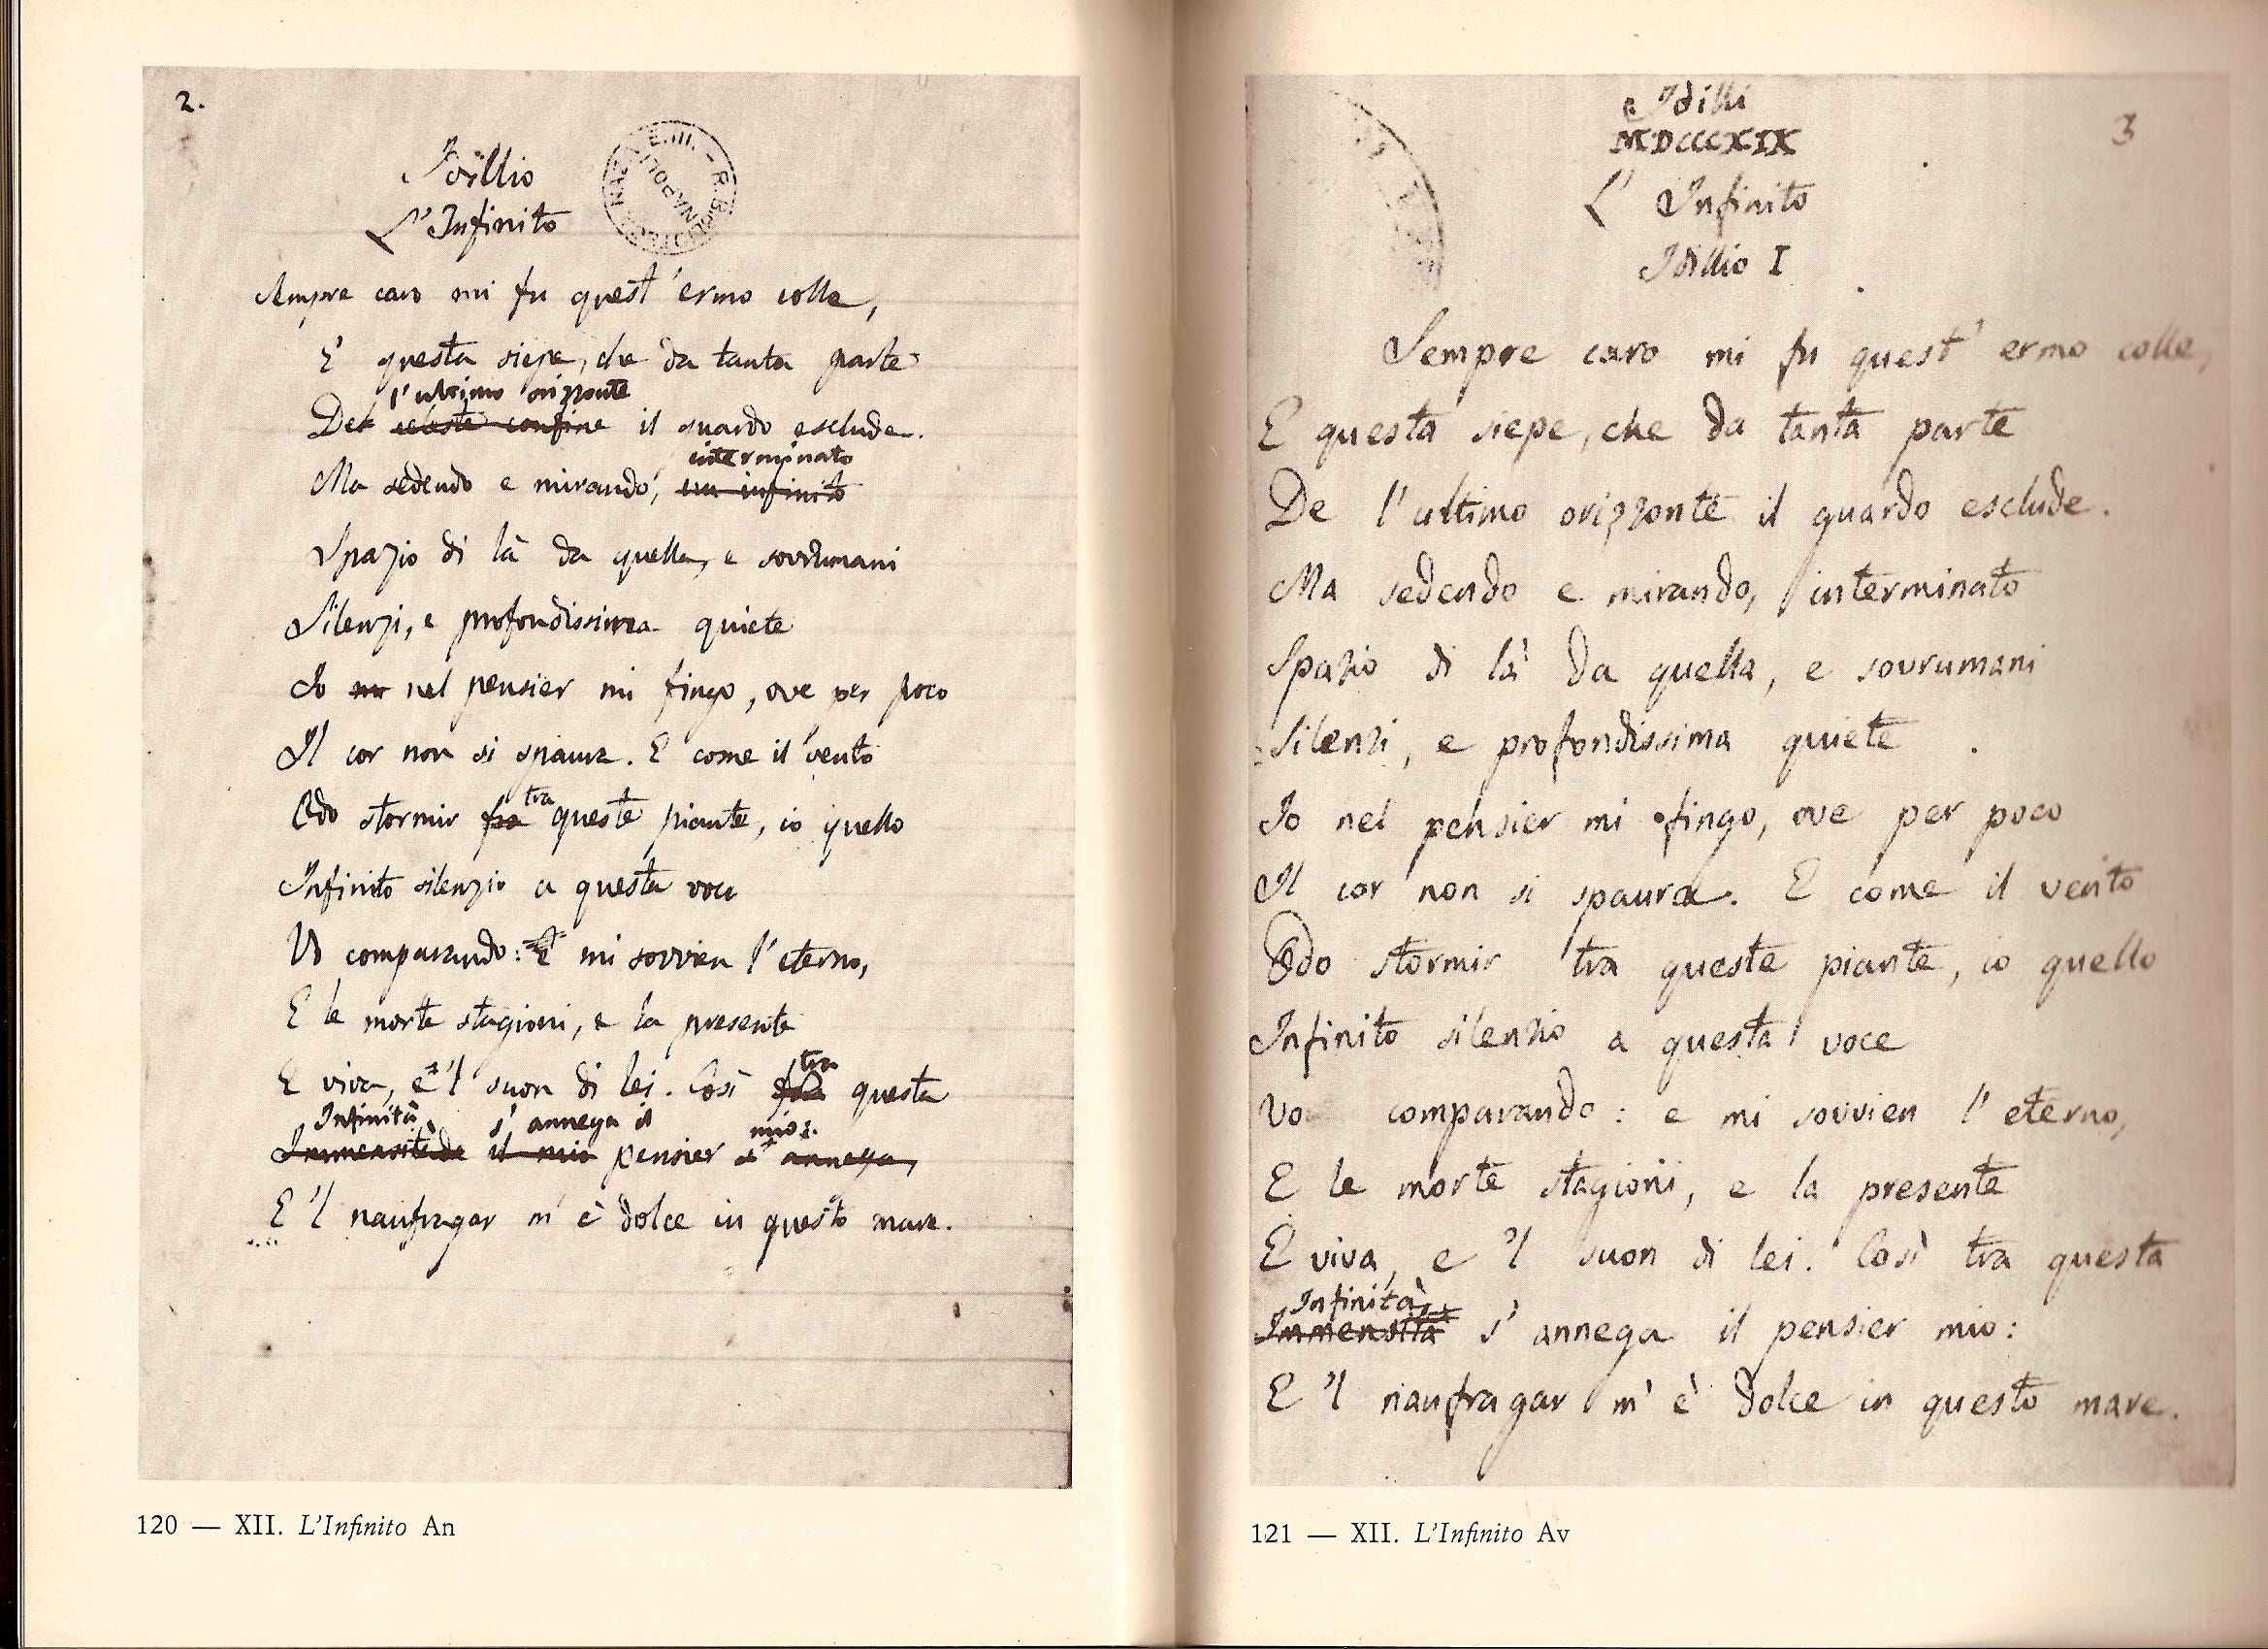 2.
Idillio
L'Infinito
R. BIBLIOTECA NAZ. V. E. III. -
NAPOLI
Sempre caro mi fu quest'ermo colle,
E questa siepe, che da tanta parte
l'ultimo orizzonte
Del celeste confine il guardo esclude.
interminato
Ma sedendo e mirando, un infinito
Spazio di là da quella, e sovrumani
Silenzi, e profondissima quiete
Io nel pensier mi fingo, ove per poco
Il cor non si spaura. E come il vento
tra
Odo stormir fra queste piante, io quello
Infinito silenzio a questa voce
Vo comparando: E mi sovvien l'eterno,
E le morte stagioni, e la presente
tra
E viva, e 'l suon di lei. Così fra questa
Infinità s'annega il mio:
Immensitade il mio pensier s'annega,
E 'l naufragar m'è dolce in questo mare.
120 — XII. L'Infinito An
Idilli
MDCCCXIX
3
L' Infinito
Idillio I
Sempre caro mi fu quest' ermo colle,
E questa siepe, che da tanta parte
De l'ultimo orizzonte il guardo esclude.
Ma sedendo e mirando, interminato
Spazio di là da quella, e sovrumani
Silenzi, e profondissima quiete
Io nel pensier mi fingo, ove per poco
Il cor non si spaura. E come il vento
Odo stormir tra queste piante, io quello
Infinito silenzio a questa voce
Vo comparando: e mi sovvien l'eterno,
E le morte stagioni, e la presente
E viva, e 'l suon di lei. Così tra questa
Infinità
Immensità s'annega il pensier mio:
E 'l naufragar m'è dolce in questo mare.
121 — XII. L'Infinito Av